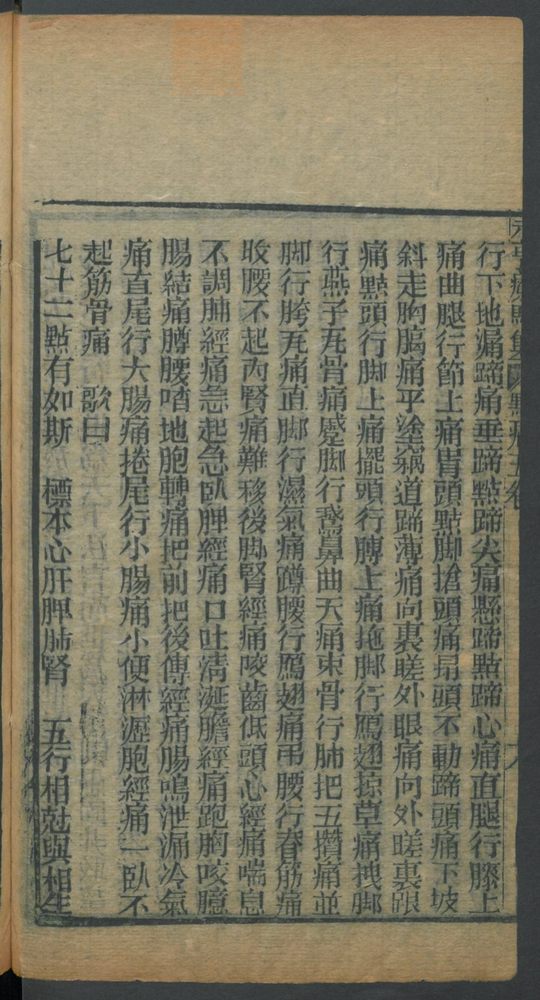 行下地漏蹄痛垂蹄點蹄尖痛懸蹄點蹄心痛直腿行膝上
痛曲腿行節上痛背頭點脚搶頭痛昻頭不動蹄頭痛下坡
斜走胸膓痛平塗窩道蹄薄痛向裏蹉外眼痛向外蹉裏跟
痛點頭行脚上痛擺頭行膊上痛拖脚行鴈翅掠草痛拽脚
行燕子瓦骨痛蹙脚行鵞鼻曲天痛束骨行肺把五攢痛並
脚行胯瓦痛直脚行濕氣痛蹲腰行鴈翅痛弔腰行脊筋痛
收腰不起內腎痛難移後脚腎經痛咬齒低頭心經痛喘息
不調肺經痛急起急臥脾經痛口吐清涎膽經痛跑胸咬臆
腸結痛膊腰喳地胞轉痛把前把後傳經痛腸鳴泄漏冷氣
痛直尾行大腸痛捲尾行小腸痛小便淋瀝胞經痛一臥不
起筋骨痛　歌曰
七十二點有如斯　標本心肝脾肺腎　五行相尅與相生